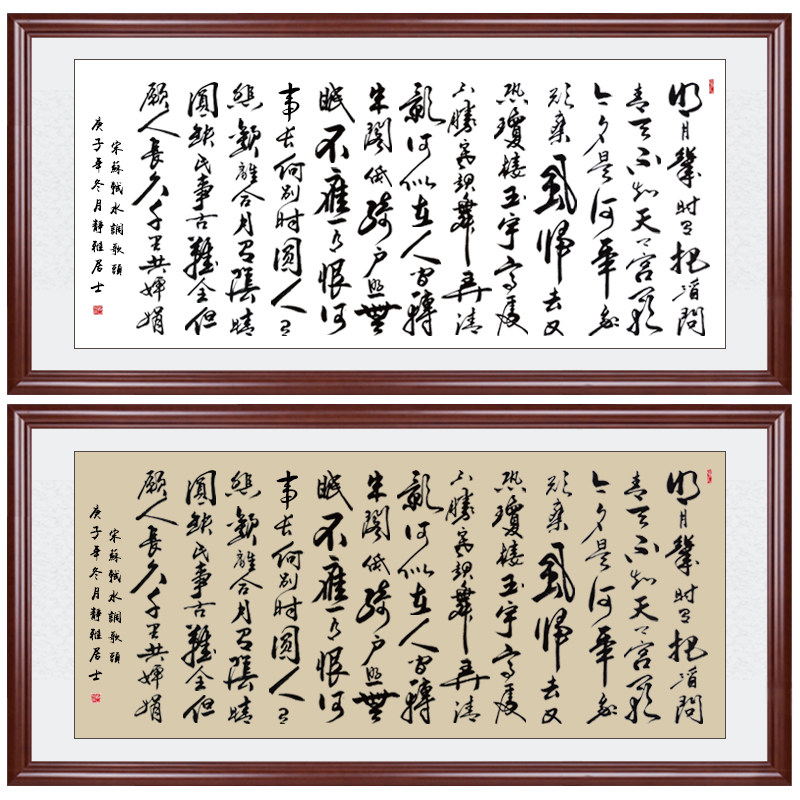 明月幾时有把酒問
青天不知天上宫闕
今夕是何年我
欲乘風歸去又
恐瓊樓玉宇高處
不勝寒起舞弄清
影何似在人間轉
朱閣低綺户照無
眠不應有恨何
事長向别时圓人有
悲歡離合月有陰晴
圓缺此事古難全但
願人長久千里共嬋娟
宋蘇軾水調歌頭
庚子年冬月靜雅居士
明月幾时有把酒問
青天不知天上宫闕
今夕是何年我
欲乘風歸去又
恐瓊樓玉宇高處
不勝寒起舞弄清
影何似在人間轉
朱閣低綺户照無
眠不應有恨何
事長向别时圓人有
悲歡離合月有陰晴
圓缺此事古難全但
願人長久千里共嬋娟
宋蘇軾水調歌頭
庚子年冬月靜雅居士